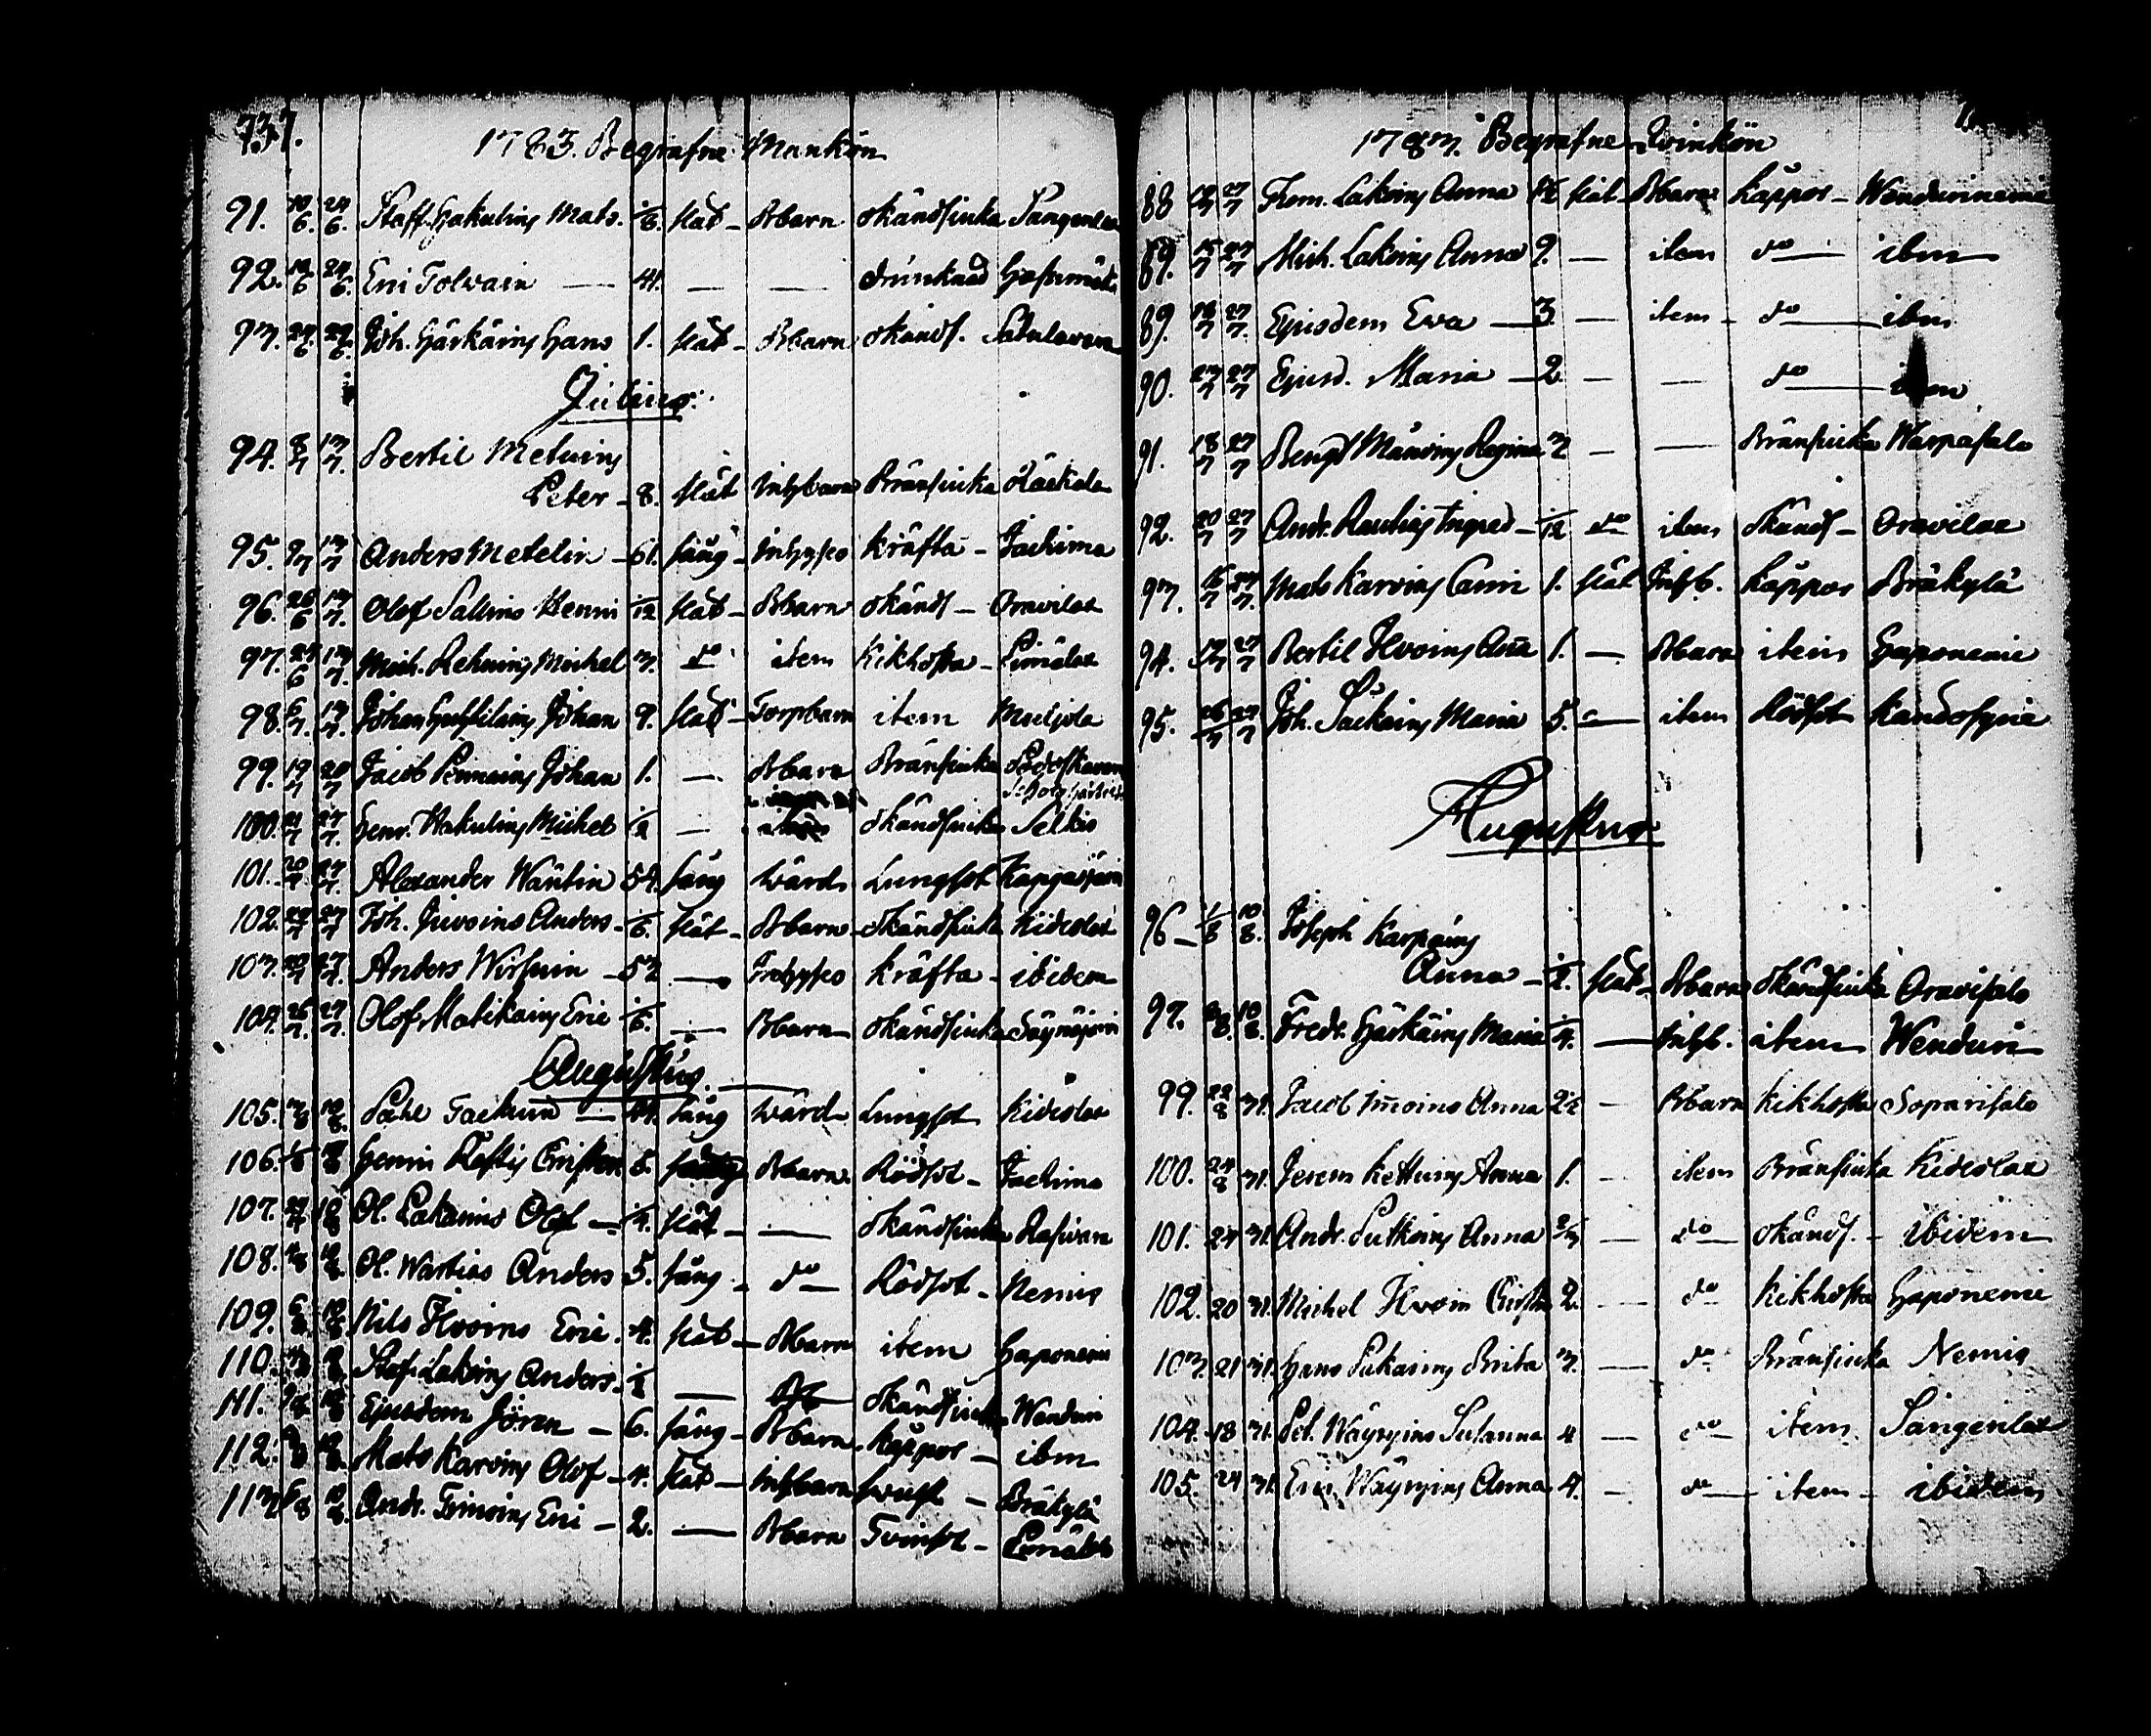 737.
1783. Begrafne Mankön
91. 10/6. 24/6. Staff. Hakulins Mats. 1/6. slät - Bbarn okändsiuka Sangenlax
92. 19/6 24/6. Eric Tolvain — 41. — — drunknad
93. 24/6 29/6. Joh. Härkäins Hans 1. slät - Bbarn okänds.
Julius.
94. 8/7 13/7. Bertil Metuins
Peter - 8. slät Inhbarn Bränsiuka
95. 9/7 13/7 Anders Metelin - 61. säng - Inhyses kräfta - Jachima
96. 26/6 13/7. Olof Sallins Henric 1/12 slät - Bbarn okänds - Oravilax
97. 27/6 13/7. Mich. Rehnins Michel 3. do item Kikhosta - Pimälax
98. 6/7. 13/7. Johan Johan 9. slät - Torpbarn item
99. 19/7 20/7 Jacob Pennains Johan 1. — Bbarn Bränsiuka
100. 21/7 27/7. Henr. Hakulins Michel 1/2 — okändsiuka Selkis
101. 20/7. 27/7. Alexander Wäntin 54. säng Wärd Lungsot Kangasjärvi
102. 22/7 27/7 Joh. Juvoins Anders - 1/6. slät - Bbarn - okändsiuka Kideslax
103. 20/7 27/7. Anders Wirsuin - 53 — Inhyses kräfta - ibidem
104. 26/7. 27/7. Olof Matikains Eric 1/6. — Bbarn okändsiuka Säynäjärvi
Augustus.
105. 3/8 10/8. Påhl — 44. säng Wärd Lungsot Kideslax
106. 1/8 10/8 Henric Christer 5. Bbarn. Rödsot - Jachima
107. 10/8 Ol. Lakains Olof — 1/4. slät - — okändsiuka Rasivara
108. 10/8. Ol. Wartias Anders 5. säng - do Rödsot - Nemis
109. 6/8. 10/8. Nils Ikvoins Eric. 4. slät - Bbarn item Haponemi
110. 10/8. Staf. Lakoins Anders. 1/2 — okändsiuka Wenduri
111. 10/8 Ejusdem Jöran - 6. säng - Bbarn. koppor - ibm
112. 10/8. Mats Karvins Olof - 4. slät - Inhbarn - Bräkylä
113. 6/8 10/8. Andr. Timoins Eric - 2. — Bbarn Tvinsot - Pimälax
1783. Begrafne Qvinkön
88 27/7 Thom. Lakoins Anna slät Bbarn Kåppor - Wendurinemi
89. 15/7 27/7 Mich. Lakoins Anna 9. — item do ibm
89. 27/7. Ejusdem Eva — 3. — item - do — ibm
90. 23/7 27/7 Ejusd. Maria — 2. — — do — ibm
91. 18/7 27/7 Bengt Mänoins Regina 3/2 — — Bränsiuka Warpasalo
92. 20/7 27/7 Andr. Rautias Ingred - 1/12 do item okänds - Oravilax
93. 16/7 27/7. Mats Karvins Carin 1. slät Inhb. Kåppor Bräkylä
94. 27/7 Bertil Ikvoins Ana 1. — Bbarn item Haponemi
95. 26/7 27/7 Joh. Maria 5. — item Rödsot
Augustus
96 - 1/8 10/8. Joseph Karpains
Anna - 1/2. slät - Bbarn okändsiuka Oravisalo
97. 10/8. Fredr. Härkäins Maria 1/4. — Inhb. item Wenduri
99. 22/8 31. Jacob Imoins Anna 2 1/2 — Bbarn Kikhosta Soparisalo
100. 24/8 31. Jerem Kettuins Anna 1. — item Bränsiuka Kideslax
101. 24 31. Andr. Putkoins Anna 2/3 — do okänds. - ibidem
102. 20 31. Michel Ikvoin Christin 2. — do Kikhosta Haponemi
103. 21 31. Hans Pukains Brita 3. — do Bränsiuka Nemis
104. 18 31. Pet. Wäyryins Susanna 4 — do item. Sangenlax
105. 24 31. Eric Wäyryins Anna 4. — do item - ibidem